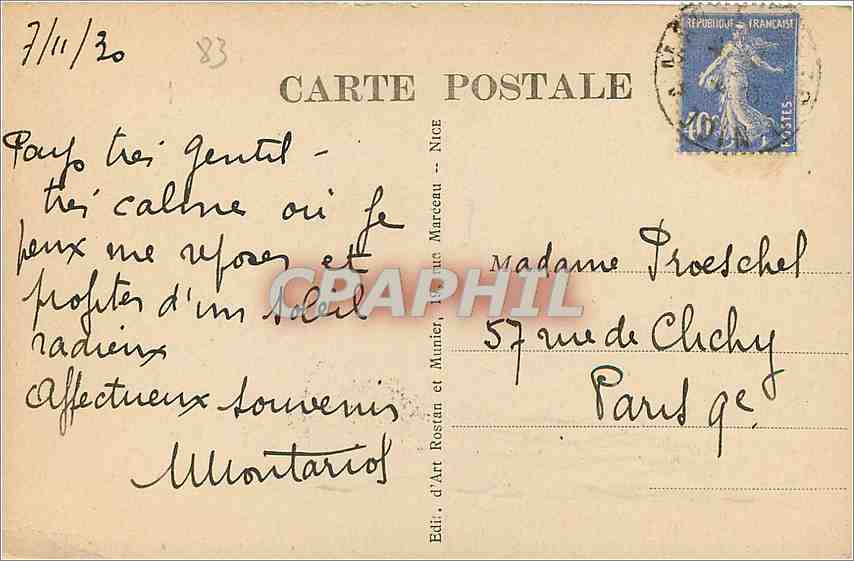 7/11/30
83
CARTE POSTALE
RÉPUBLIQUE FRANÇAISE
POSTES
40c
Pays très gentil -
très calme où je
peux me reposer et
profiter d'un soleil
radieux
Affectueux souvenir
Edit. d'Art Rostan et Munier, rue Marceau -- NICE
Madame Proeschel
57 rue de Clichy
Paris 9e
CPAPHIL